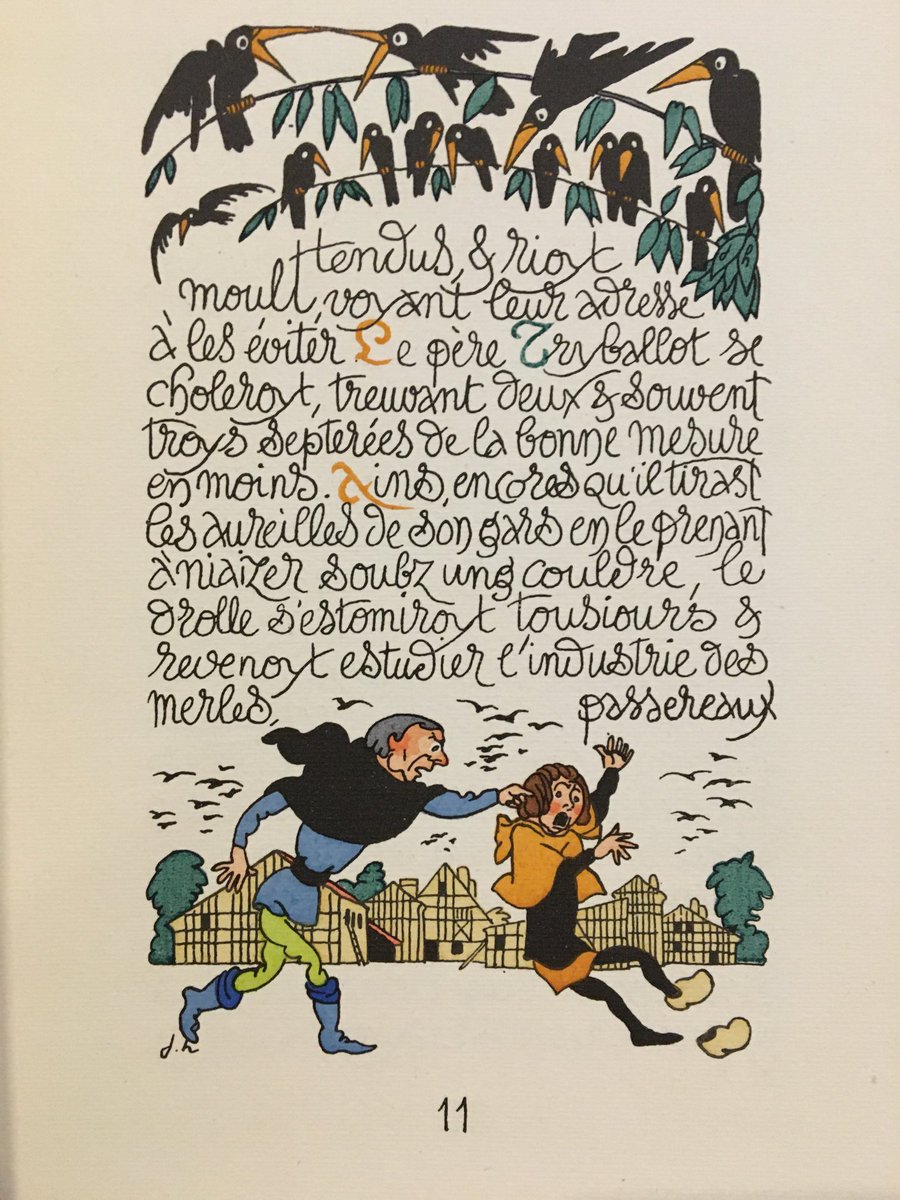 tendus, & rioyt
moult, voyant leur adresse
à les éviter. Le père Tryballot se
choleroyt, treuvant deux & souvent
troys septerées de la bonne mesure
en moins. Ains, encores qu'il tirast
les aureilles de son gars en le prenant
à niaizer soubz ung couldre, le
drolle s'estomiroyt tousiours &
revenoyt estudier l'industrie des
merles, passereaux
j.h
11